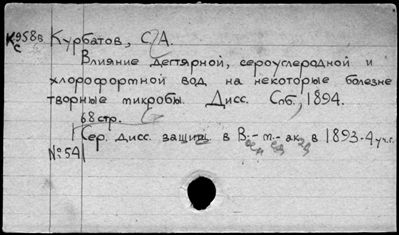 К958в Курбатов, С. А.
с
Влияние дегтярной, сероуглеродной и
хлорофортной вод на некоторые болезне
творные микробы. Дисс. Спб., 1894.
68 стр.
Сер. дисс. защищ. в В.-м.-ак. в 1893-4 уч. г.
№54